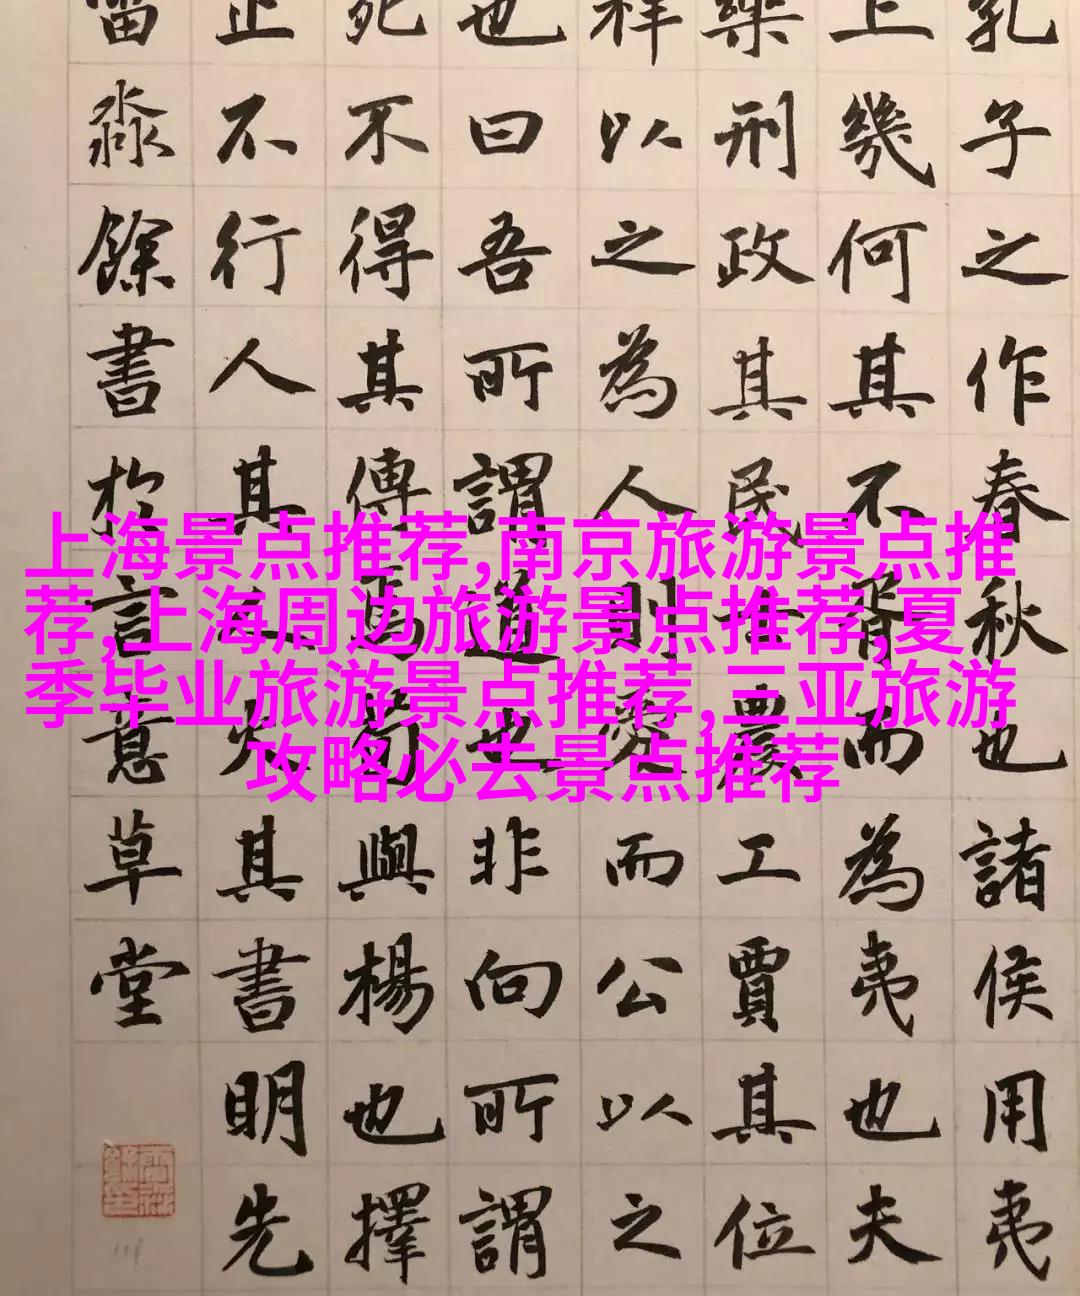 孔子之作春秋也諸侯用夷
上幾何其不胥而為夷也夫
樂刑政其民士農工賈其位
祥以之為人則愛而公以之
也曰吾所謂道也非向所謂
死不得其傳焉荀與楊也擇
止不行人其人火其書明先
淼餘書於言意草堂
上海景点推荐,南京旅游景点推
荐,上海周边旅游景点推荐,夏
季毕业旅游景点推荐,三亚旅游
攻略必去景点推荐